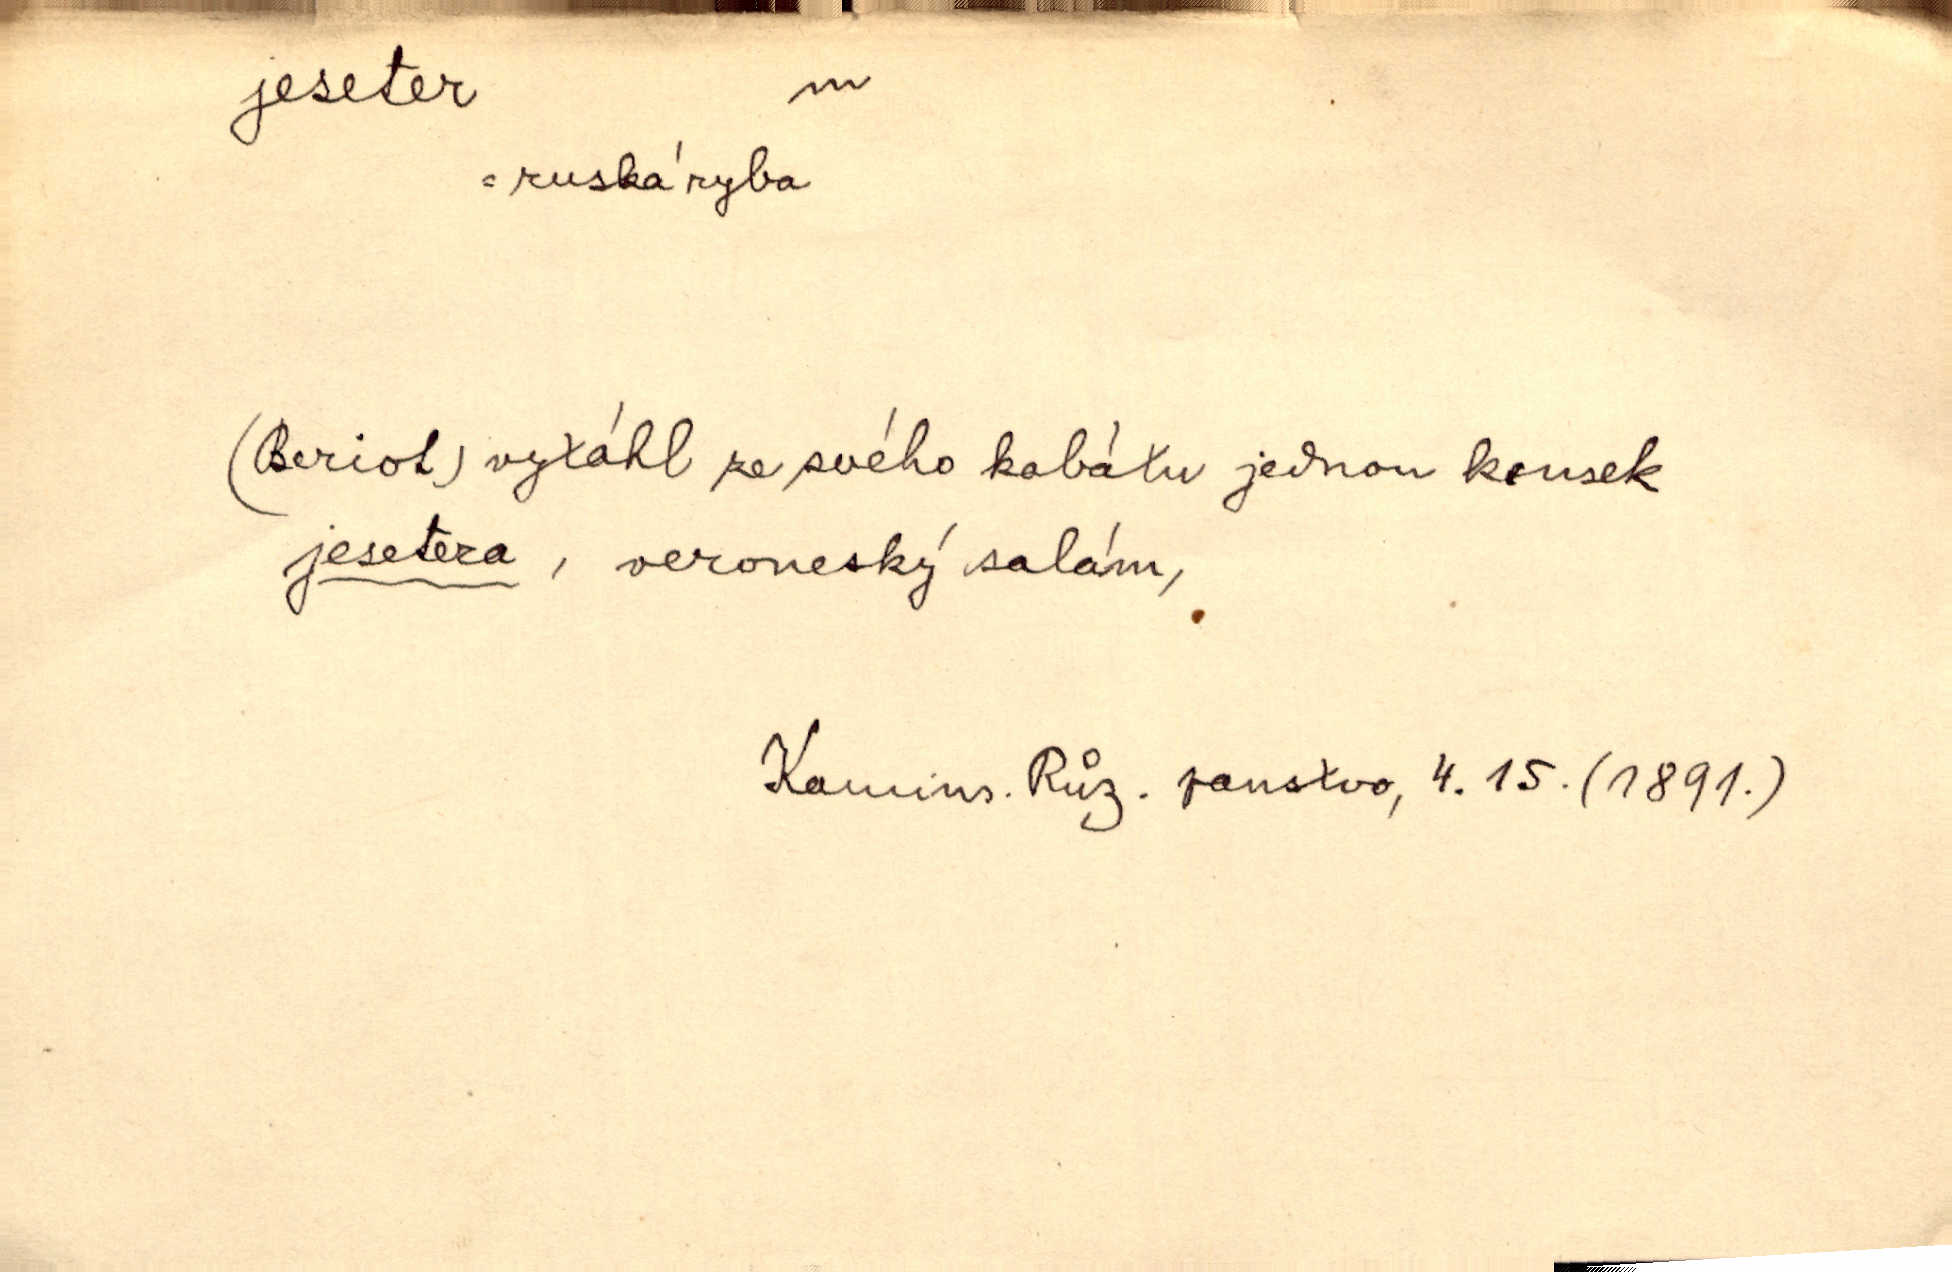 jeseter m
= ruská ryba
(Beriot) vytáhl ze svého kabátu jednou kousek
jesetera, veroneský salám,
Kamins. Růz. panstvo, 4. 15. (1891.)